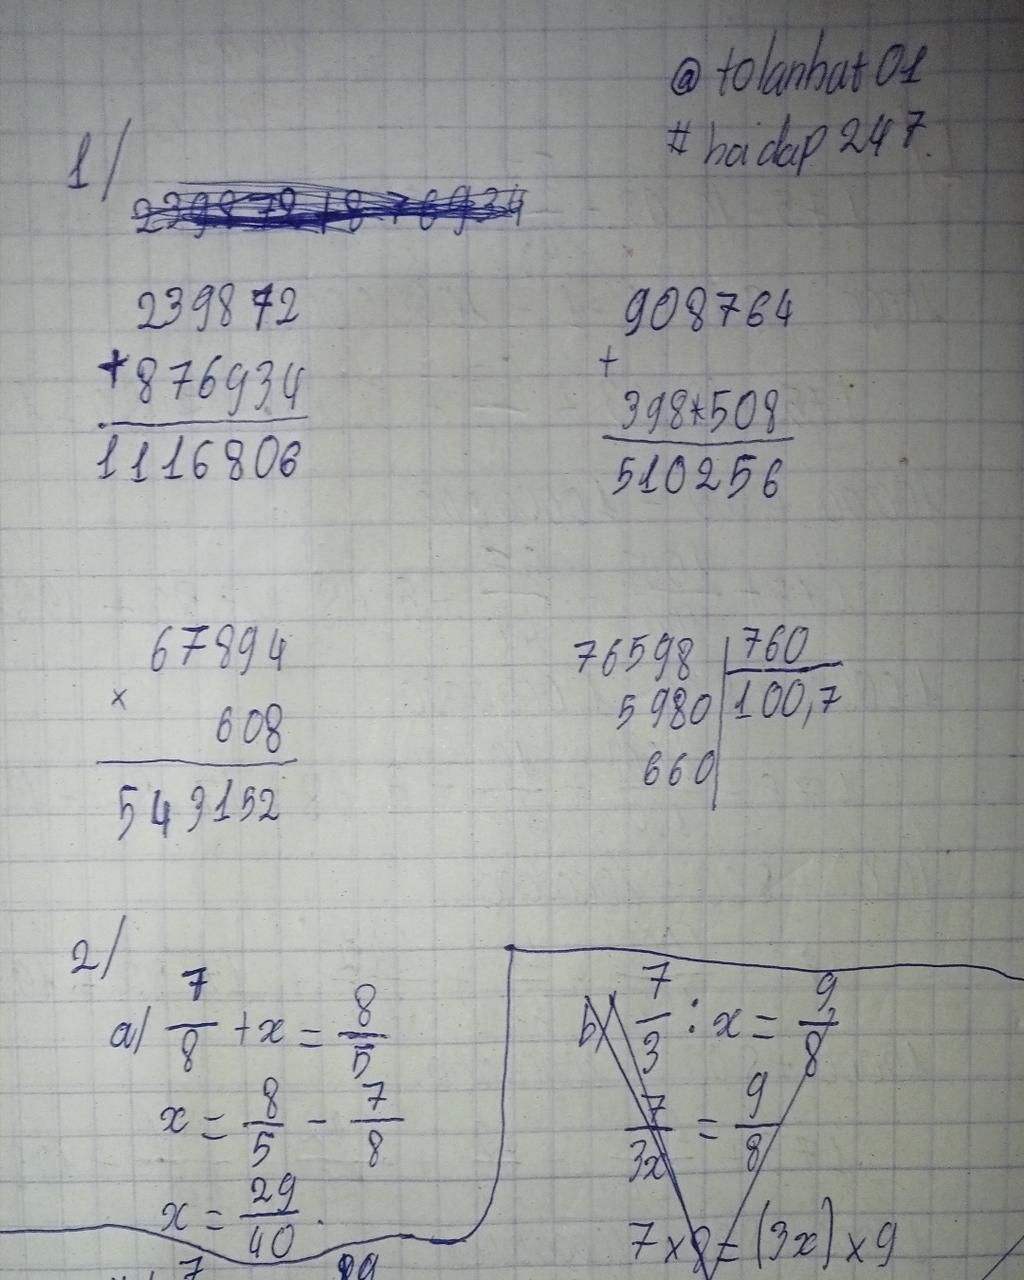 @tolanhat01
#hoidap247.
1/
239872
+876934
1116806
908764
+
398*508
510256
67894
×
608
543152
76598 | 760
5980 | 100,7
660
2/
a/ 7/8 + x = 8/5
x = 8/5 - 7/8
x = 29/40.
b/ 7/3 : x = 9/8
7/3x = 9/8
7 × 8 = (3x) × 9
7